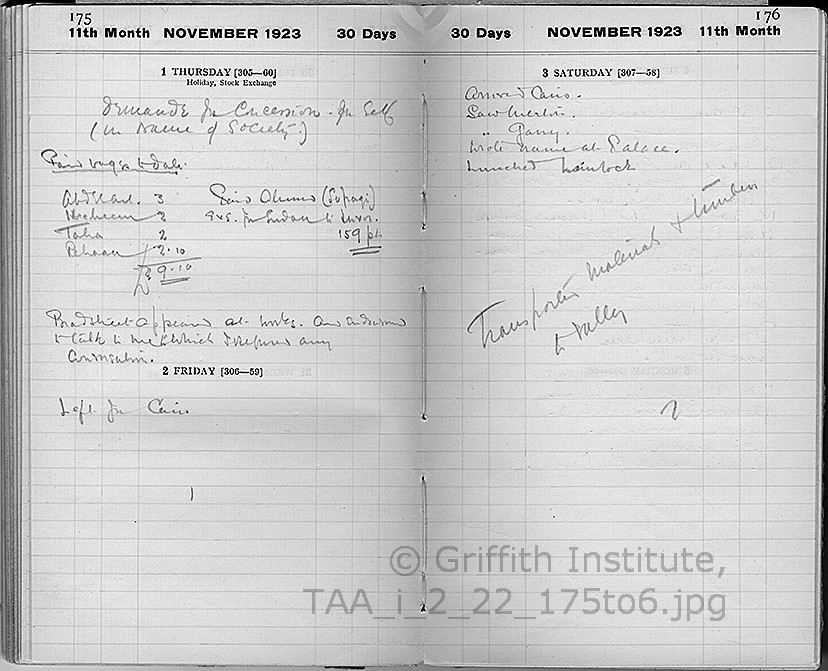 175
11th Month NOVEMBER 1923 30 Days
1 THURSDAY [305—60]
Holiday, Stock Exchange
Demands for Concession for Self
(in name of Society.)
Paid wages to date.
Abd el Aal. 3
Hosein 2
Taha 2
2.10
£ 9.10
Paid Ahmed (Sufragi)
exs. for Sudan to Luxor.
159 pt.
Bradstreet appeared at works. And endeavoured
to talk to me & which I refused any
conversation.
2 FRIDAY [306—59]
Left for Cairo
1
176
30 Days NOVEMBER 1923 11th Month
3 SATURDAY [307—58]
Arrived Cairo.
Saw Merton.
„ Garry.
Wrote name at Palace.
Lunched
Transported materials & timber
to valley
2
© Griffith Institute,
TAA_i_2_22_175to6.jpg